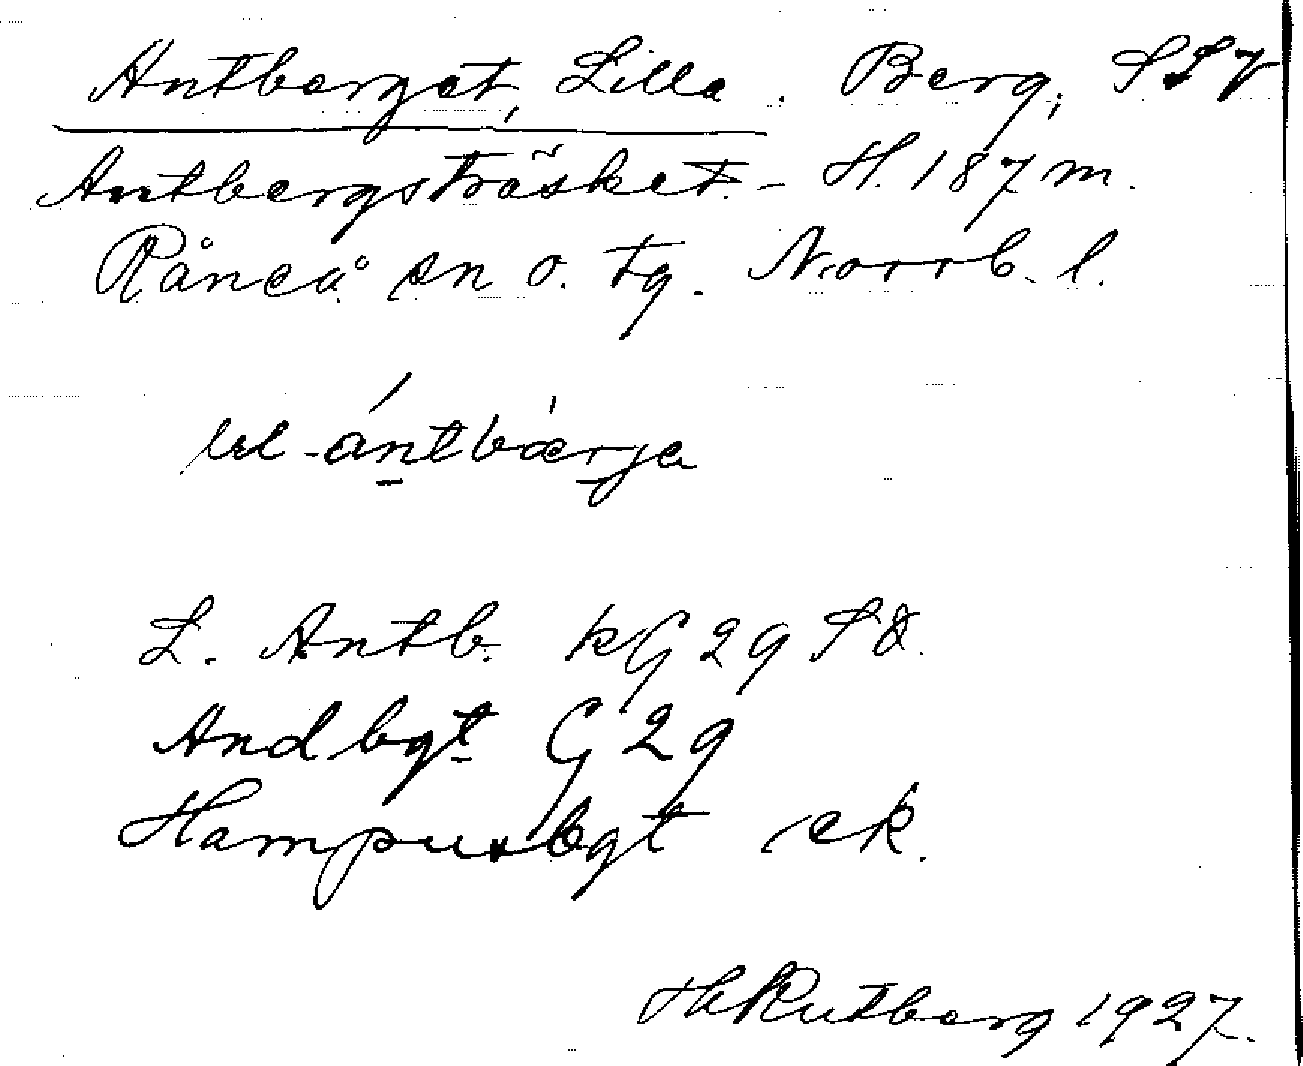 Antberget, Lilla. Berg, SSV
Antbergsträsket. - H. 187 m.
Råneå sn o. tg. Norrb. l.
antbærja
L. Antb. kG 29 SO.
Andbgt G 29
Hampusbgt ek.
HRutberg 1927.